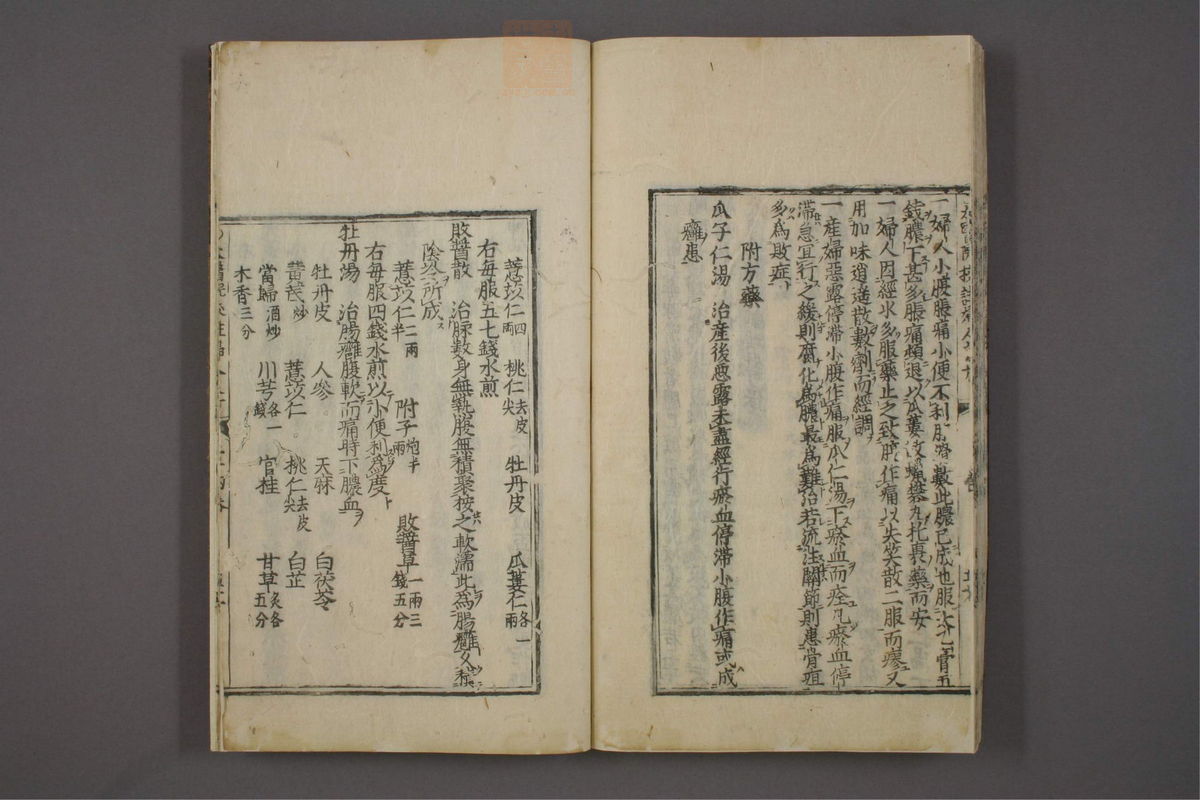 一婦人小腹脹痛小便不利脉滑數此膿已成也服太乙膏五
錢膿下甚多脹痛頓退以瓜蔞散蠟礬丸托裏藥而安
一婦人因經水多服藥止之致腹作痛以失笑散二服而瘳又
用加味逍遥散數劑而經調
一産婦惡露停滯小腹作痛服瓜仁湯下瘀血而痊凡瘀血停
滯急宜行之緩則腐化為膿最為難治若流注關節則患骨疽
多為敗症
附方藥
瓜子仁湯 治産後惡露未盡經行瘀血停滯小腹作痛或成
癰患
薏苡仁四両 桃仁去皮尖 牡丹皮 瓜蔞仁各一両
右每服五七錢水煎
敗醬散 治脉數身無熱腹無積聚按之軟濡此為腸癰久積
陰冷所成
薏苡仁二両半 附子炮半両 敗醬草一両三錢五分
右每服四錢水煎以小便利為度
牡丹湯 治腸癰腹軟而痛時下膿血
牡丹皮 人參 天麻 白茯苓
黄芪炒 薏苡仁 桃仁去皮尖 白芷
當歸酒炒 川芎各一錢 官桂 甘草炙各五分
木香三分